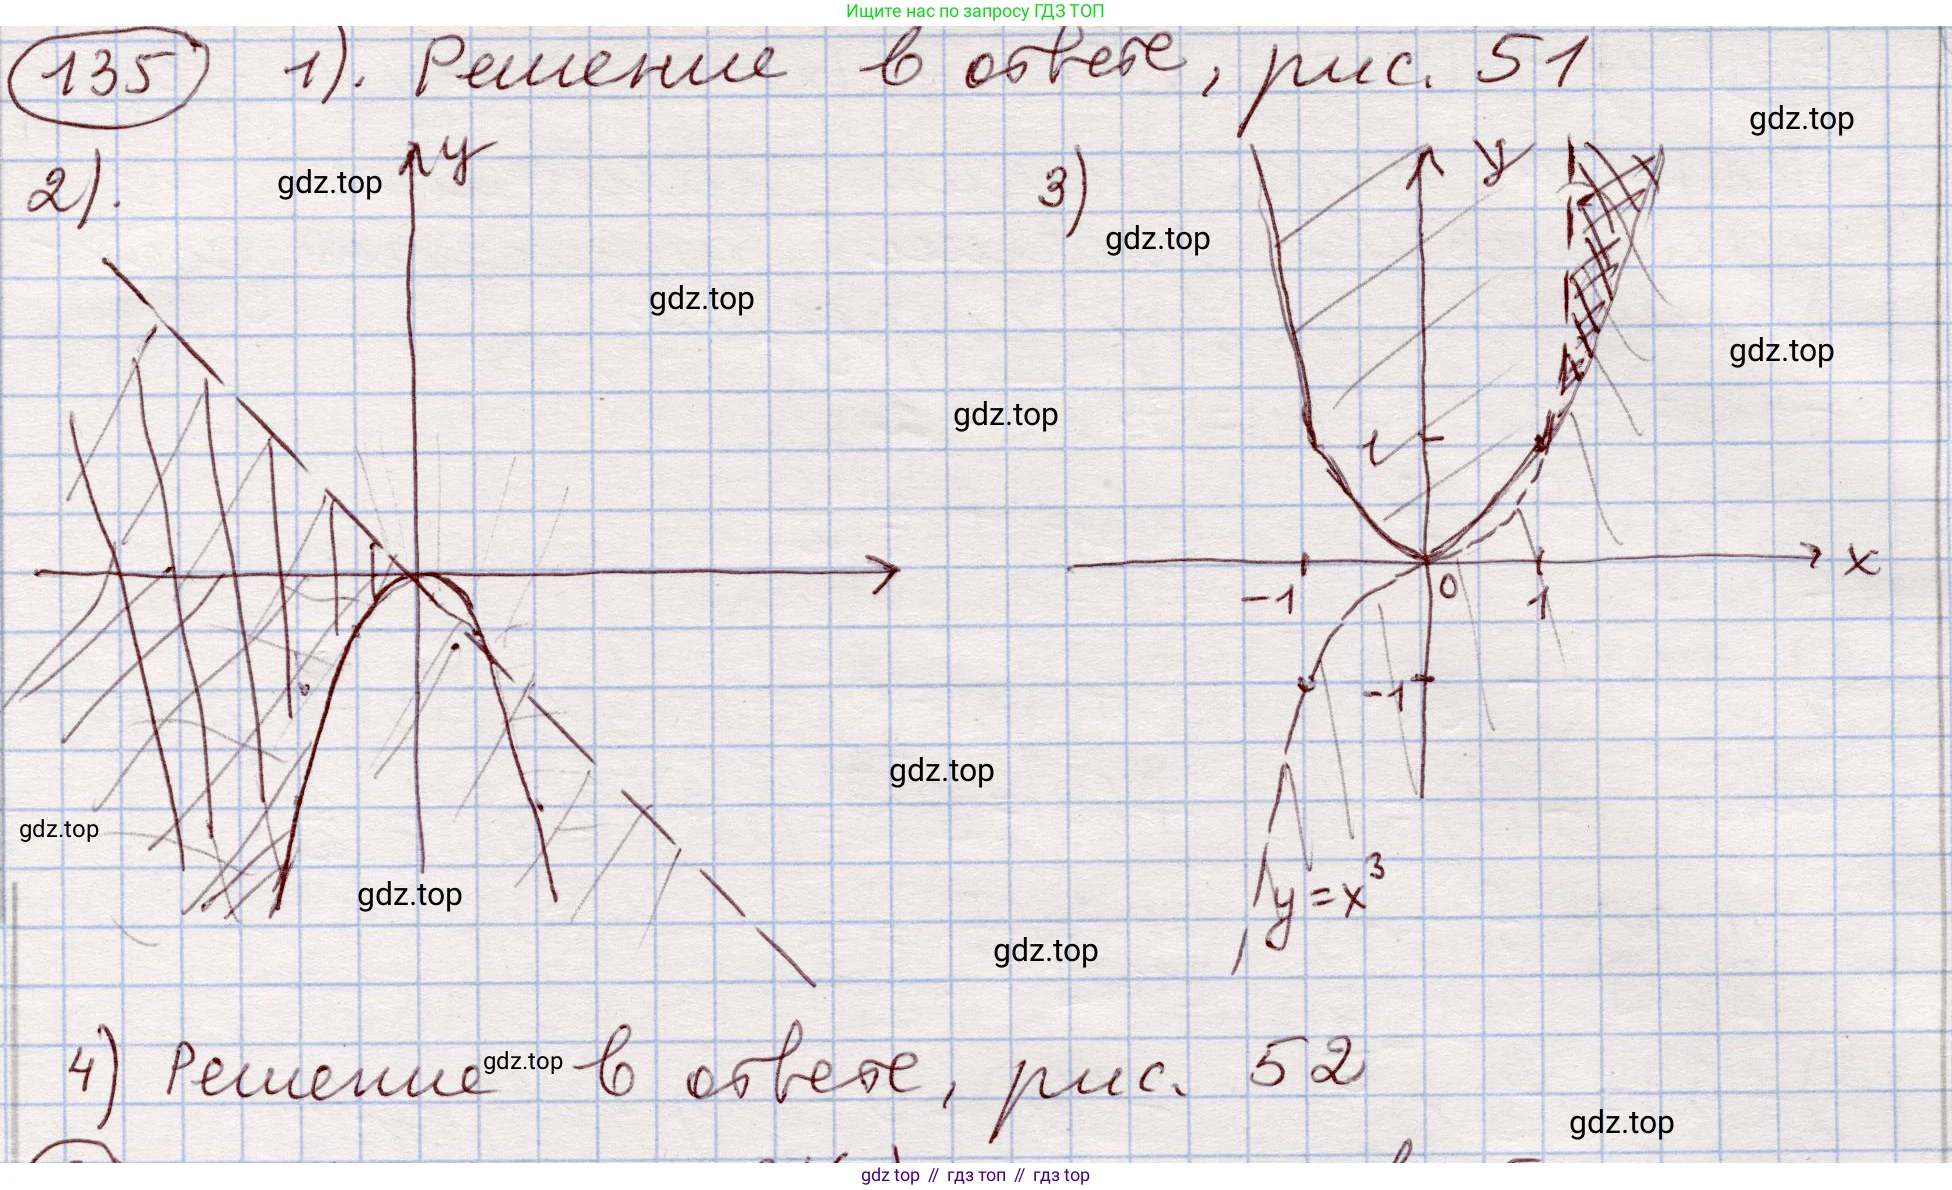 Ищите нас по запросу ГДЗ ТОП
135 1). Решение в ответе, рис. 51
gdz.top
2). y
gdz.top
3) y
gdz.top
gdz.top
gdz.top
gdz.top
1
x
-1 0 1
-1
gdz.top
gdz.top
gdz.top
y = x³
gdz.top
4) Решение в ответе, рис. 52
gdz.top
gdz.top
gdz top // гдз топ // гдз top